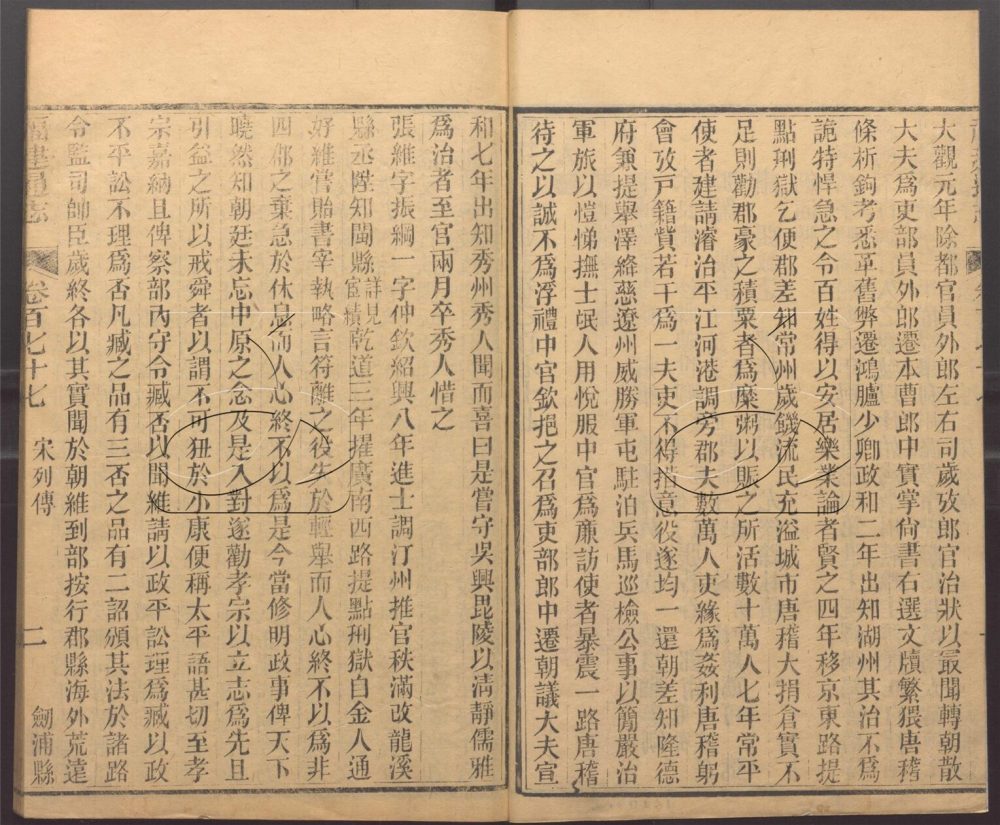 大觀元年除都官員外郎左右司歲攷郎官治狀以最聞轉朝散
大夫爲吏部員外郎遷本曹郎中實掌尙書右選文牘繁猥唐稽
條析鉤考悉革舊弊遷鴻臚少卿政和二年出知湖州其治不爲
詭特悍急之令百姓得以安居樂業論者賢之四年移京東路提
點刑獄乞便郡差知常州歲饑流民充溢城市唐稽大捐倉實不
足則勸郡豪之積粟者爲糜粥以賑之所活數十萬人七年常平
使者建請濬治平江河港調旁郡夫數萬人吏緣爲姦利唐稽躬
會攷戸籍貲若干爲一夫吏不得措意役遂均一還朝差知隆德
府兼提舉澤絳慈遼州威勝軍屯駐泊兵馬巡檢公事以簡嚴治
軍旅以愷悌撫士民人用悅服中官爲廉訪使者暴震一路唐稽
待之以誠不爲浮禮中官欽挹之召爲吏部郎中遷朝議大夫宣
和七年出知秀州秀人聞而喜曰是嘗守吳興毘陵以淸靜儒雅
爲治者至官兩月卒秀人惜之
張維字振綱一字仲欽紹興八年進士調汀州推官秩滿改龍溪
縣丞陞知閩縣詳見宦績乾道三年擢廣南西路提點刑獄自金人通
好維嘗貽書宰執略言符離之役失於輕舉而人心終不以爲非
四郡之棄急於休息而人心終不以爲是今當修明政事俾天下
曉然知朝廷未忘中原之念及是入對遂勸孝宗以立志爲先且
引益之所以戒舜者以謂不可狃於小康便稱太平語甚切至孝
宗嘉納且俾察部內守令臧否以聞維請以政平訟理爲臧以政
不平訟不理爲否凡臧之品有三否之品有二詔頒其法於諸路
令監司帥臣歲終各以其實聞於朝維到部按行郡縣海外荒遠
福建通志 卷百七十七 宋列傳 二 劒浦縣